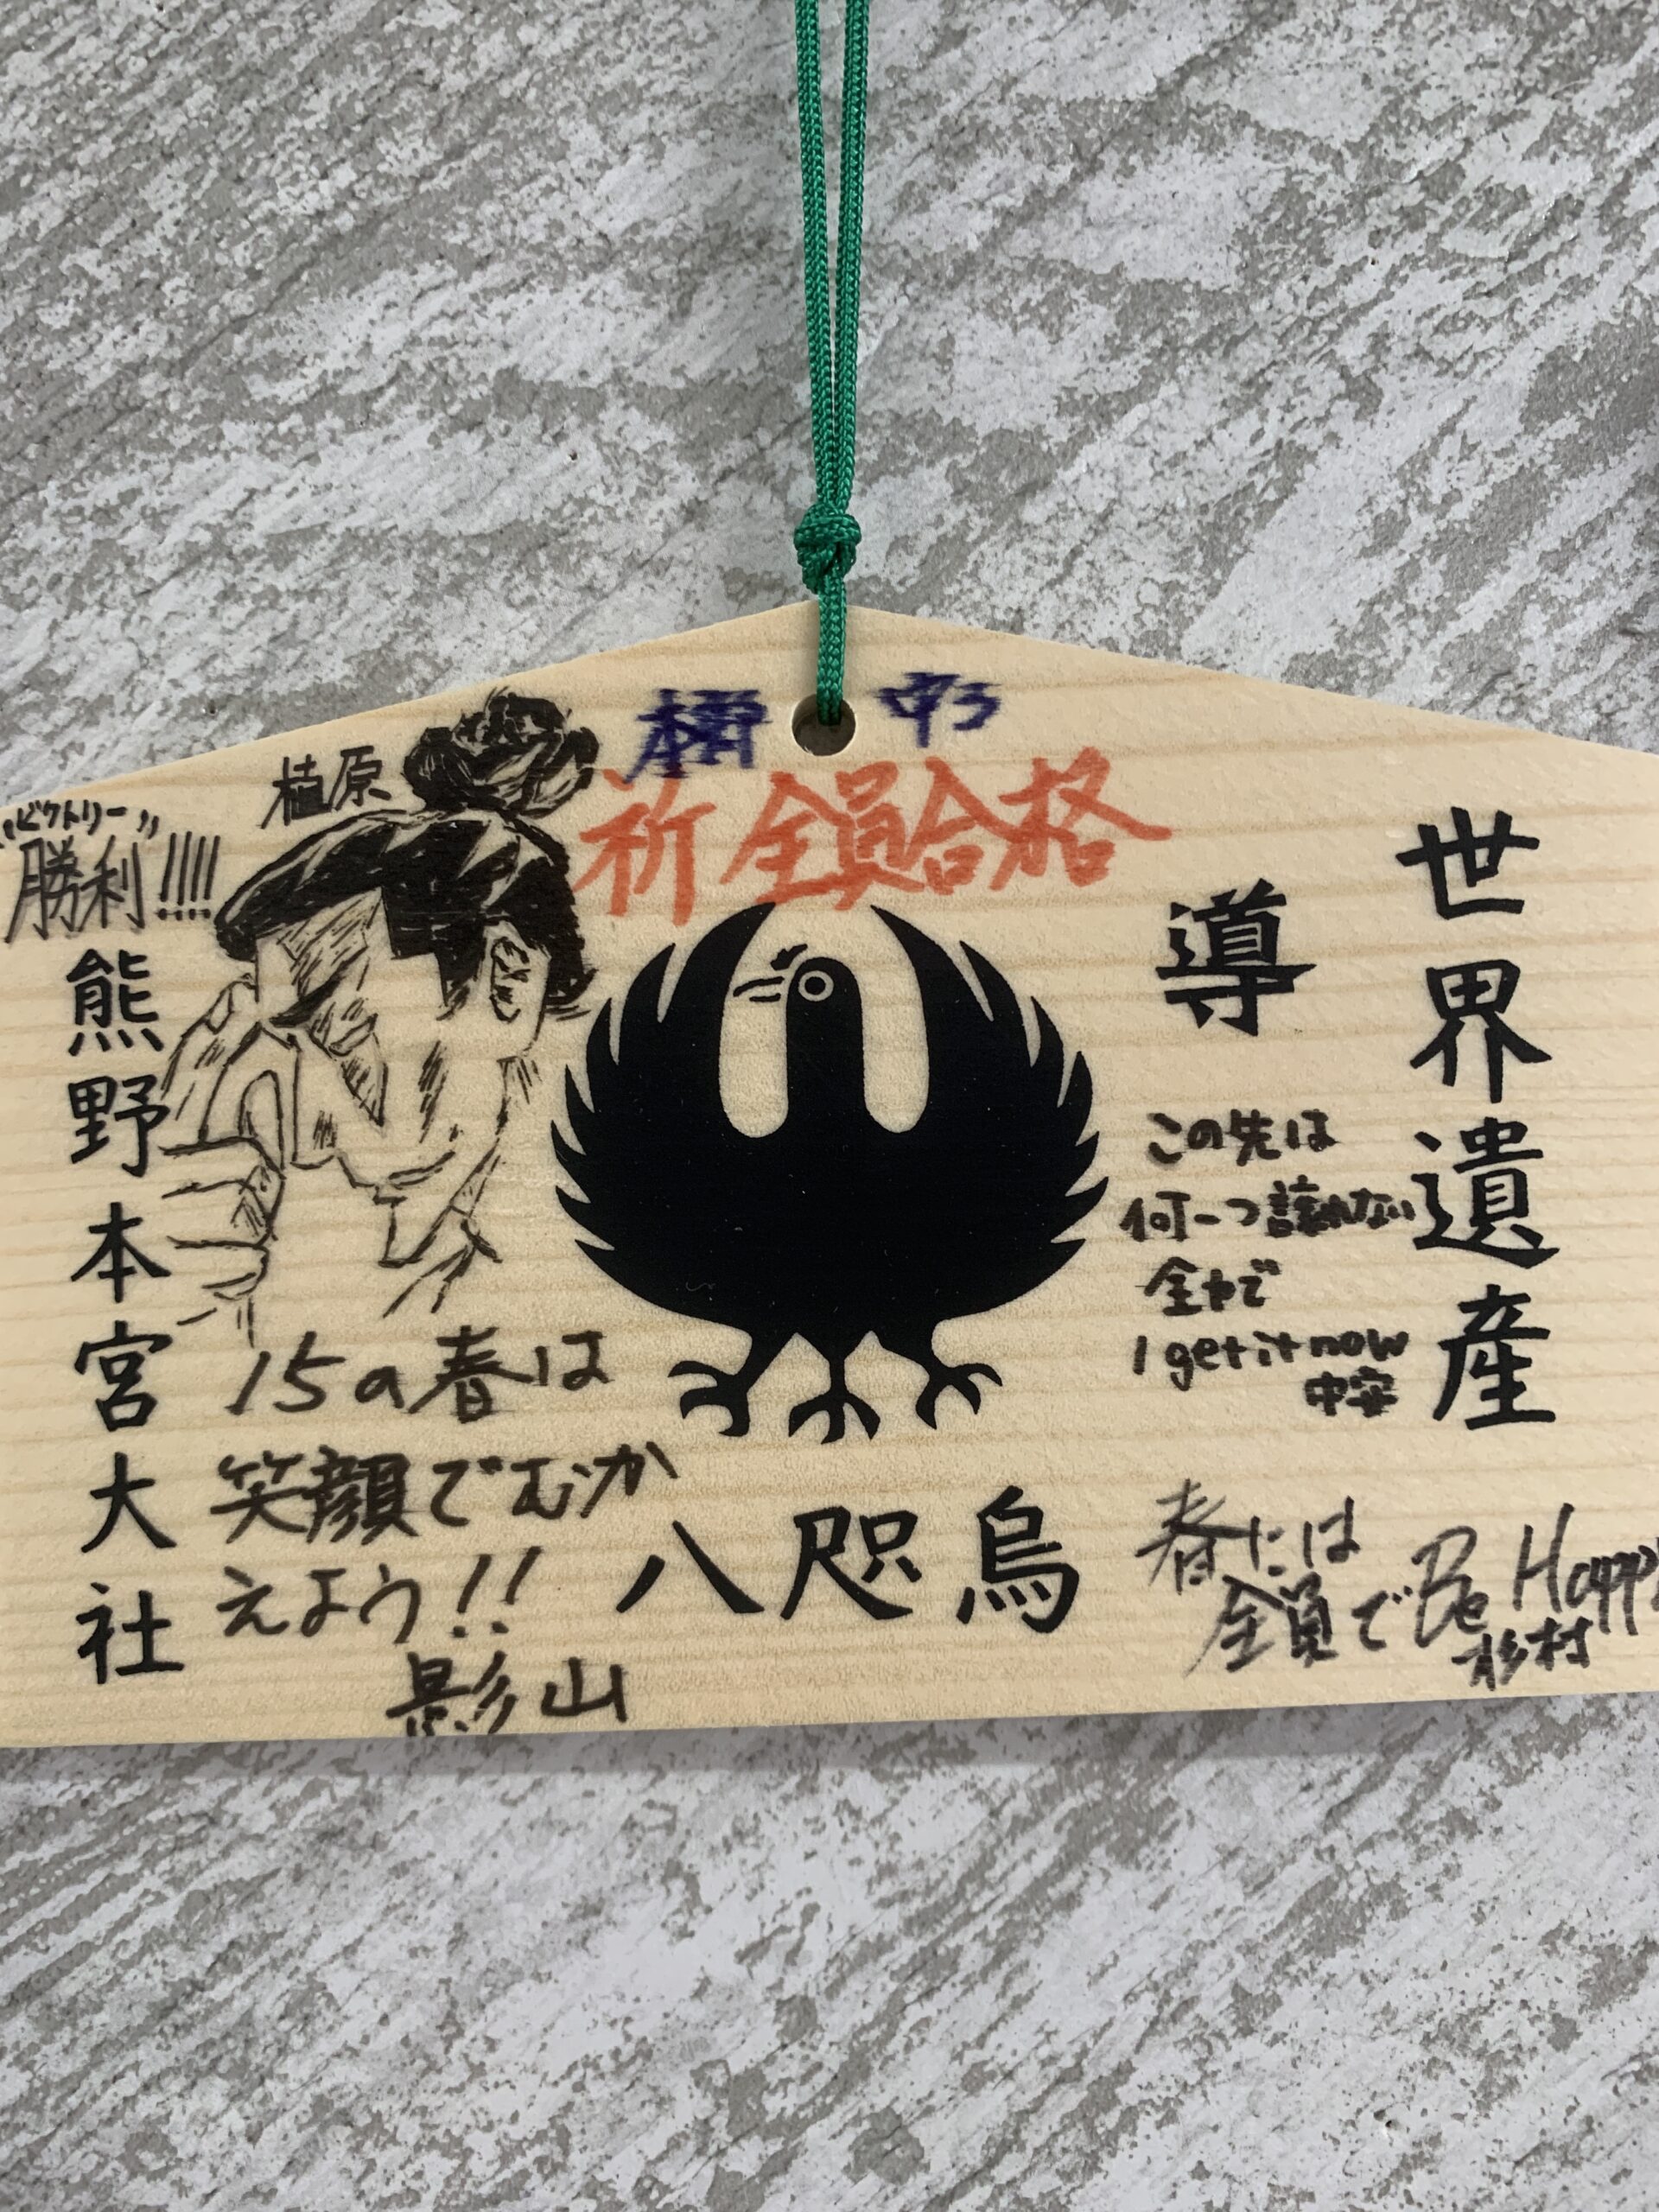 祈全員合格
世界遺産
導
この先は
何一つ譲れない
全力で
I get it now
中安
植原
"ビクトリー"
勝利!!!!
熊野本宮大社
15の春は
笑顔でむか
えよう!!
影山
八咫烏
春には
全員でBe Happy
杉村